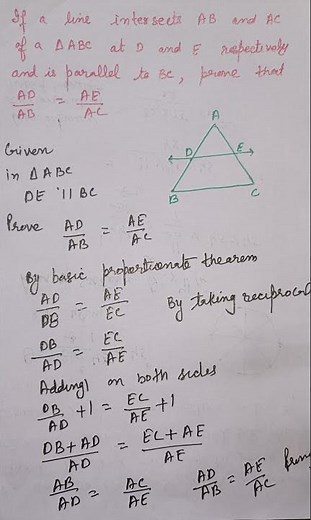 If a line intersects AB and AC
of a ΔABC at D and E respectively
and is parallel to BC, prove that
AD/AB = AE/AC
A
D E
B C
Given
in ΔABC
DE || BC
Prove AD/AB = AE/AC
By basic proportionate thearem
AD/DB = AE/EC By taking reciprocal
DB/AD = EC/AE
Adding 1 on both sides
DB/AD + 1 = EC/AE + 1
DB + AD/AD = EC + AE/AE
AB/AD = AC/AE AD/AB = AE/AC